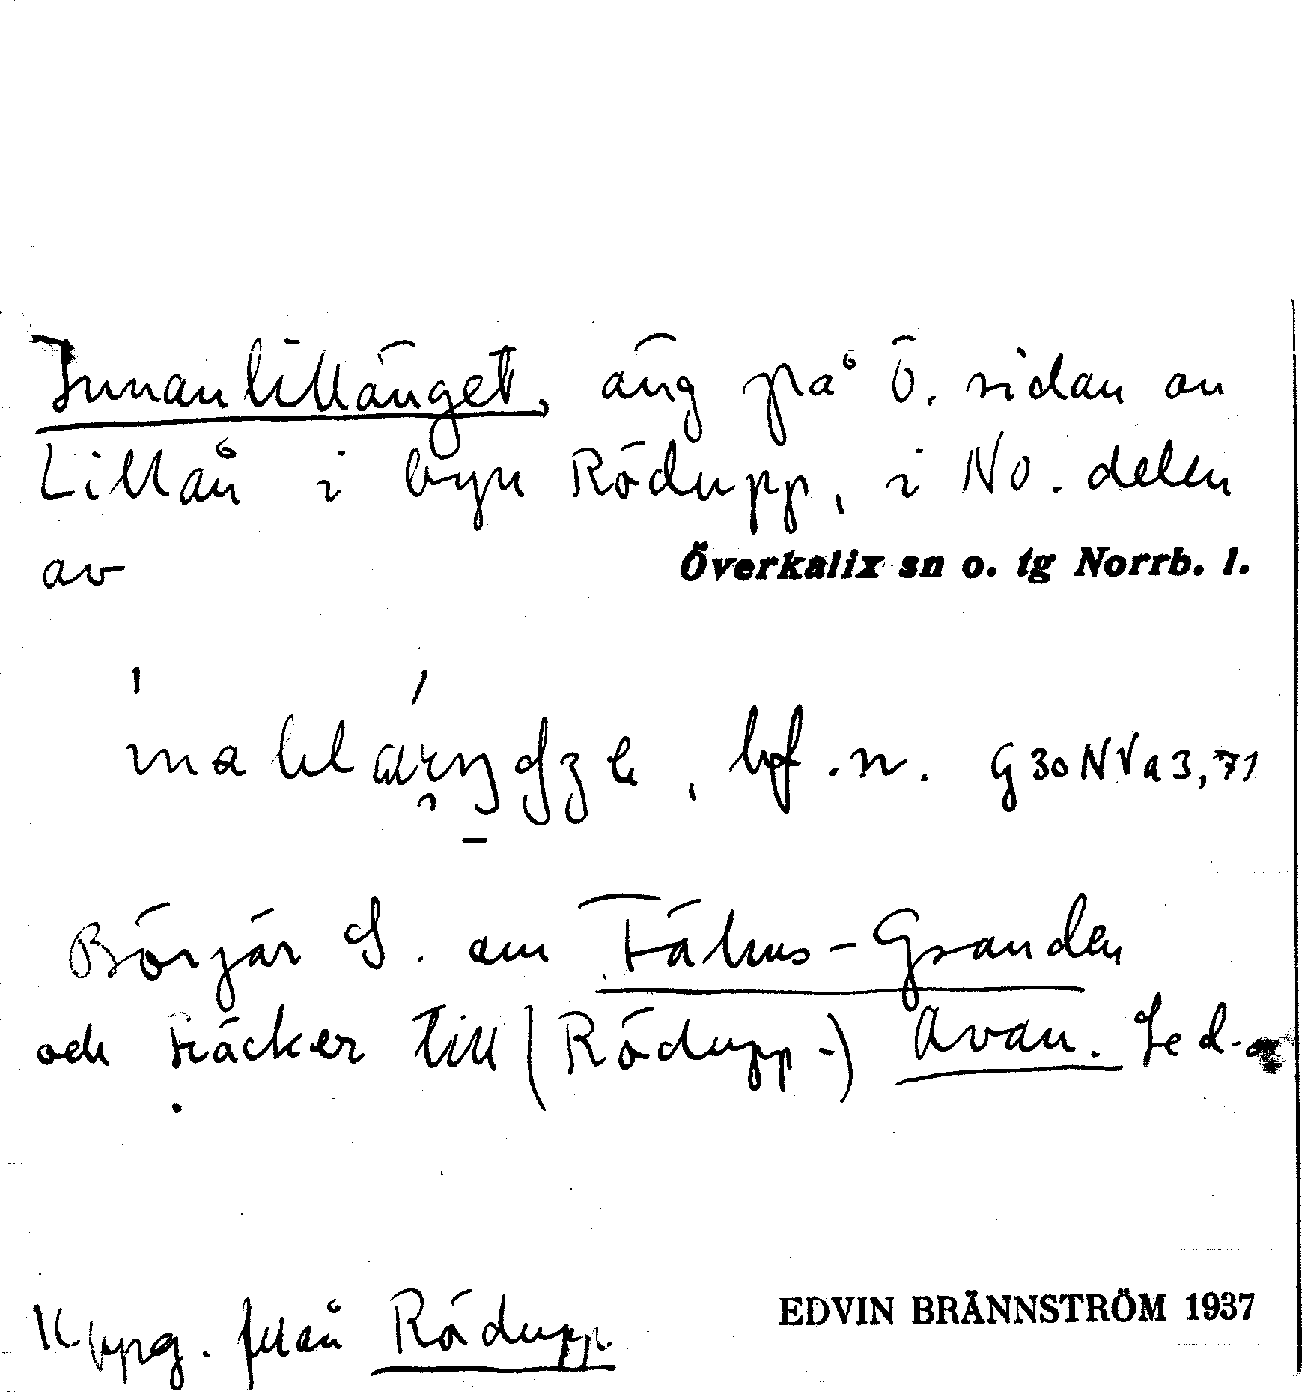 Innanlillänget, äng på Ö. sidan av
Lillån i byn Rödupp, i NO. delen
av Överkalix sn o. tg Norrb. l.
bf. n. G30NVa3,71
Börjar S. om Fähus-Granden
och räcker till (Rödupp-) Avan. Led.
Uppg. från Rödupp. EDVIN BRÄNNSTRÖM 1937